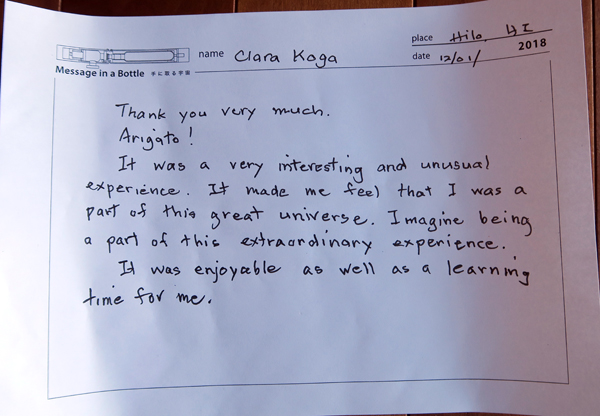 place Hilo, HI
name Clara Koga
date 12/01/ 2018
Message in a Bottle 手に取る宇宙
Thank you very much.
Arigato!
It was a very interesting and unusual
experience. It made me feel that I was a
part of this great universe. Imagine being
a part of this extraordinary experience.
It was enjoyable as well as a learning
time for me.